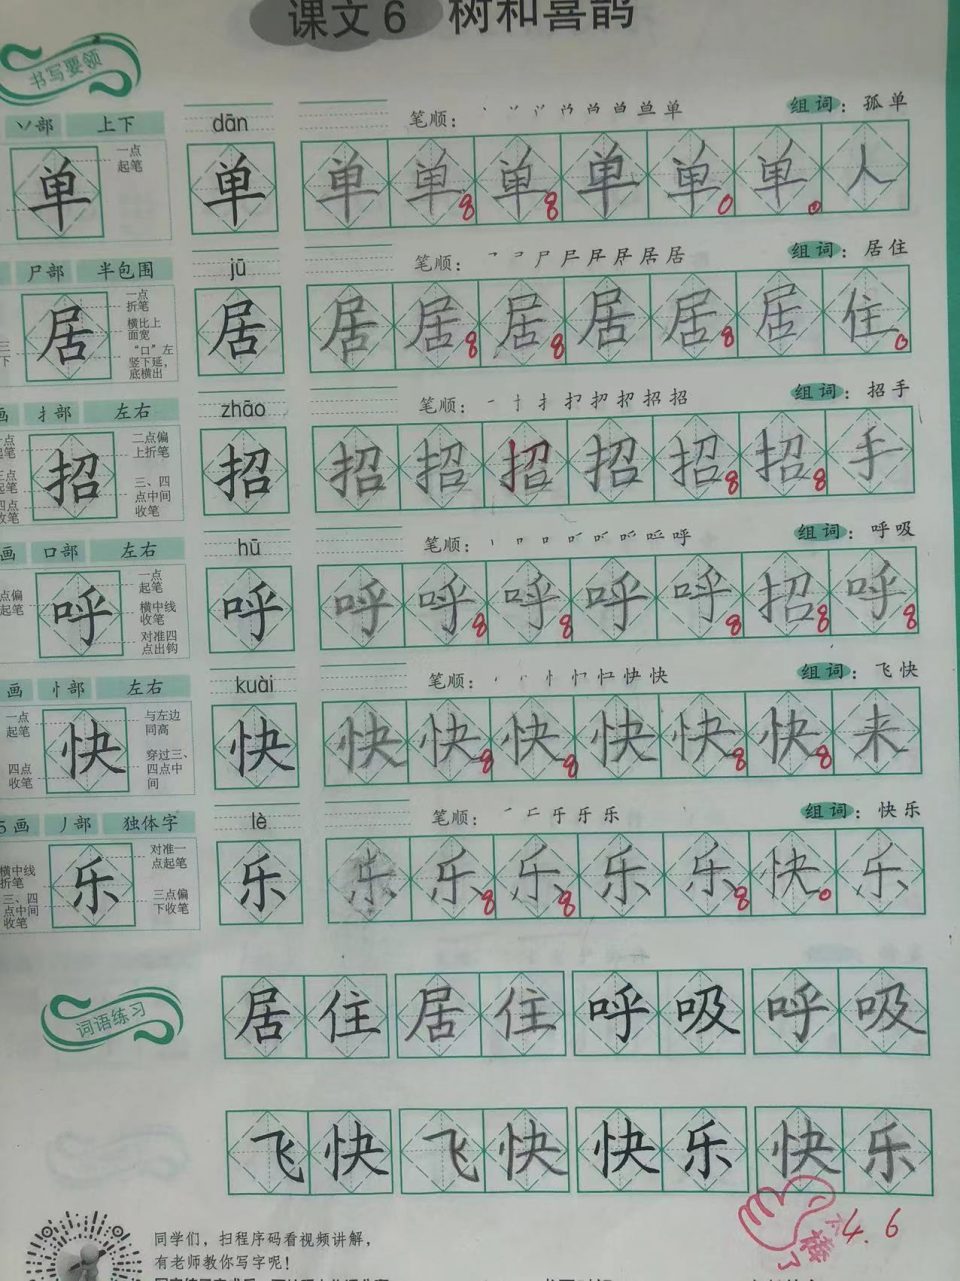 课文6 树和喜鹊
书写要领
丷部 上下 dān 笔顺: 组词:孤单
一点起笔
单 单 单 单 单 单 单 单 人
尸部 半包围 jū 笔顺: 组词:居住
一点折笔
横比上面宽
“口”左竖下延,底横出
居 居 居 居 居 居 居 居 住
扌部 左右 zhāo 笔顺: 组词:招手
二点偏上折笔
三、四点中间收笔
招 招 招 招 招 招 招 招 手
画 口部 左右 hū 笔顺: 组词:呼吸
点偏起笔
一点起笔
横中线收笔
对准四点出钩
呼 呼 呼 呼 呼 呼 呼 招 呼
画 忄部 左右 kuài 笔顺: 组词:飞快
一点起笔
四点收笔
与左边同高
穿过三、四点中间
快 快 快 快 快 快 快 快 来
5画 丿部 独体字 lè 笔顺: 组词:快乐
横中线折笔
三、四点中间收笔
对准一点起笔
三点偏下收笔
乐 乐 乐 乐 乐 乐 乐 快 乐
词语练习
居住 居住 呼吸 呼吸
飞快 飞快 快乐 快乐
太棒了
4.6
同学们,扫程序码看视频讲解,
有老师教你写字呢!